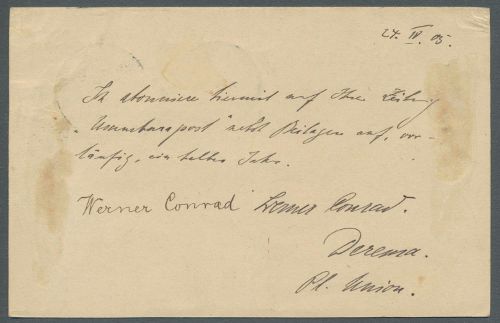 24. IV. 05.
Ich abonniere hiermit auf Ihre Zeitung
„Usambarapost" nebst Beilagen auf, vor-
läufig, ein halbes Jahr.
Werner Conrad Werner Conrad.
Derema.
Pl. Union.